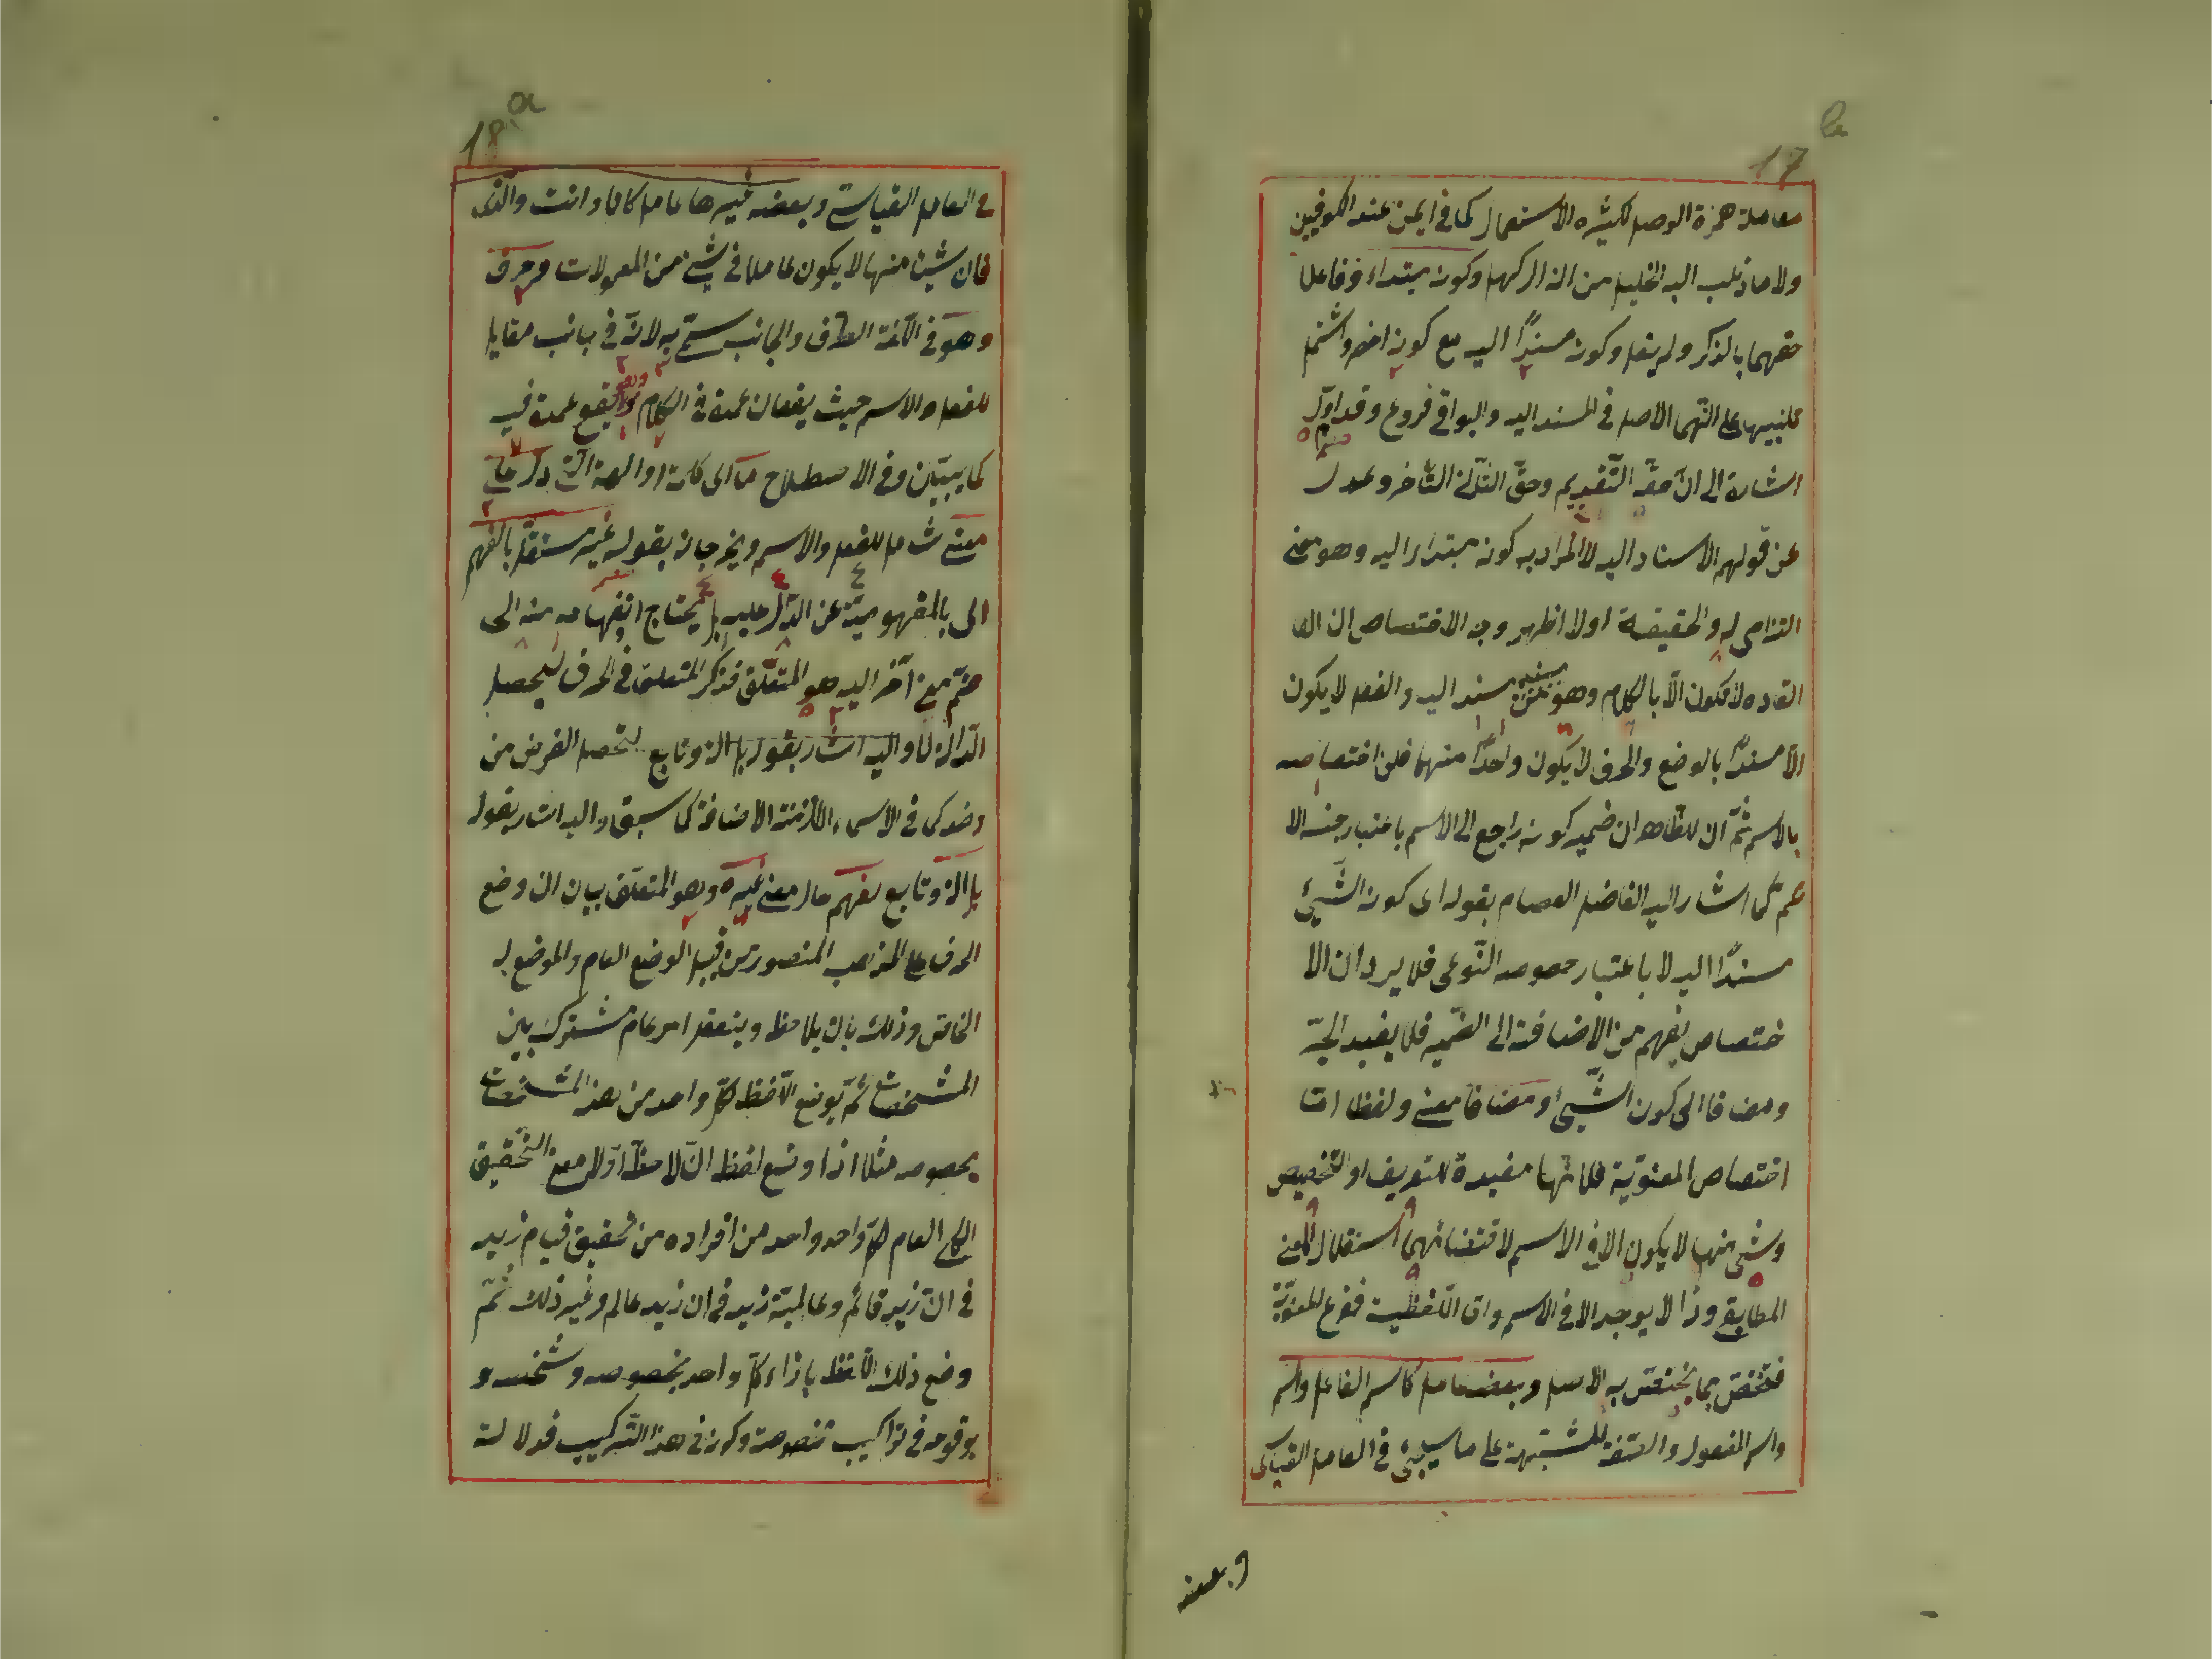 17 b
معاملة همزة الوصل لكثرة الاستعمال كما في ايمن عند الكوفيين
ولا ما ذهب اليه الخليل من ان ال كهل وكونه مبتداء وفاعلا
حقهما بالذكر ولم يقل وكونه مسندًا اليه مع كونه اخصر واشتمل
للتنبيه على انهما الاصل في المسند اليه والبواقي فروع وقد اول
اشارة الى ان حقه التقديم وحق الثلاثة التأخر وعدل
عن قولهم الاسناد اليه لا المراد به كونه مبتداء اليه وهو معنى
التزامي له والحقيقة اولا اظهر وجه الاختصاص ان الفا
الفاده لا تكون الا بالكلام وهو من مسند اليه والفعل لا يكون
الا مسندًا بالوضع والحرف لا يكون واحدًا منهما فلزم اختصاصه
بالاسم ثم ان الظاهر ان ضمير كونه راجع الى الاسم باعتبار جنسه الا
عم كما اشار اليه الفاضل العصام بقوله اى كونه الشيئ
مسندًا اليه لا باعتبار خصوصه النوعي فلا يرد ان الا
ختصاص يفهم من الاضافة الى الضمير فلا يفيد الجر
ومضافا اى كون الشيئ ومضافا معنى ولفظا اما
اختصاص المعنوية فلانها مفيدة للتعريف او التخصيص
وشئ منها لا يكون الا في الاسم لاقتضائهما استقلال المعنى
المطابقي وذا لا يوجد الا في الاسم واما اللفظية ففرع للمعنوية
فتختص بما يختص به الاصل وبعضه عامل كاسم الفاعل واسم
واسم المفعول والصفة المشبهة على ما سيجئ في العامل القياسي
وبعضه
18 a
في العامل القياسي وبعضه غيرها عامل كانا وانت والذى
فان شيئا منها لا يكون عاملا في شيئ من المعمولات وحرف
وهو في اللغة الطرف والجانب سمى به لانه في جانب مقابل
للفعل والاسم حيث يقعان عمدة في الكلام ولا يقع عمدة فيه
كما يبين وفي الاصطلاح ما اى كلمة دل على
معنى شامل للفعل والاسم ويخرجان بقوله غير مستقل بالفهم
اى بالمفهومية عن الدال عليه بل يحتاج انفهامه منه الى
ضم معنى آخر اليه هو المتعلق فذكر المتعلق في الحرف ليحصل
الدلالة واليه اشار بقوله بل آلة وتابع لتحصل الغرض من
وضعه كما في الاسماء اللازمة الاضافة كما سبق واليه اشار بقوله
بل آلة وتابع لفهم حال معنى غيره وهو المتعلق بيان ان وضع
الحرف على المذهب المنصور من قبيل الوضع العام والموضوع له
الخاص وذلك بان يلاحظ ويتعقل امر عام مشترك بين
المشخصات ثم يوضع اللفظ لكل واحد من هذه المشخصات
بخصوصه مثلا اذا وضع لفظ ان لاحظ اولا معنى التحقيق
الكلي العام لكل واحد واحد من افراده من تحقيق قيام زيد
في ان زيد قائم وعالمية زيد في ان زيد عالم وغير ذلك ثم
وضع ذلك اللفظ بازاء كل واحد بخصوصه وشخصه و
بوقوعه في تراكيب مخصوصة وكونه في هذا التركيب فدلالته